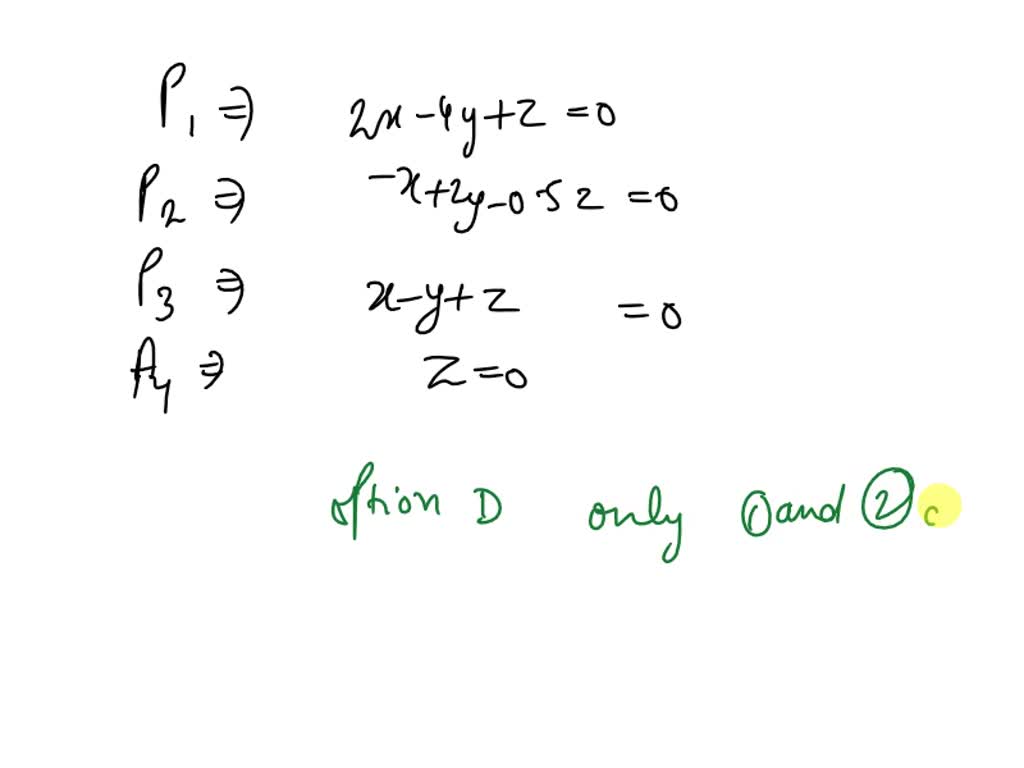 P₁ ⇒ 2x-4y+z =0
P₂ ⇒ -x+2y-0.5z =0
P₃ ⇒ x-y+z =0
P₄ ⇒ z=0
option D only ① and ② c